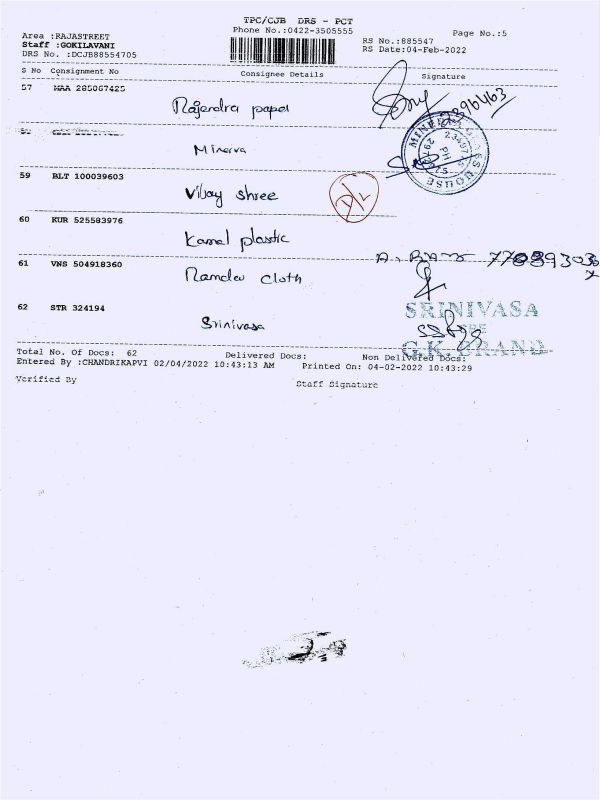 TPC/CJB DRS - PCT
Phone No.:0422-3505555
Page No.:5
Area :RAJASTREET
Staff :GOKILAVANI
DRS No. :DCJB88554705
RS No.:885547
RS Date:04-Feb-2022
S No Consignment No Consignee Details Signature
57 MAA 285067425
Rajendra paper
2396463
Minerva
MINERVA
HOUSE
59 BLT 100039603
Vijay shree
D/L
60 KUR 525583976
Kamal plastic
61 VNS 504918360
Ramdev cloth
62 STR 324194
Srinivasa
SRINIVASA
G.K. BRAND
Total No. Of Docs: 62 Delivered Docs: Non Delivered Docs:
Entered By :CHANDRIKAPVI 02/04/2022 10:43:13 AM Printed On: 04-02-2022 10:43:29
Verified By Staff Signature